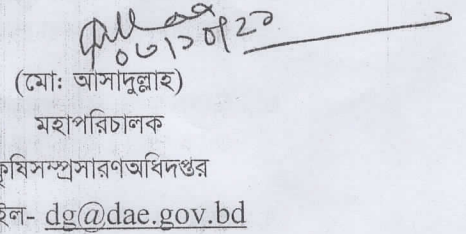 (মো: আসাদুল্লাহ)
মহাপরিচালক
কৃষিসম্প্রসারণঅধিদপ্তর
ইল- dg@dae.gov.bd